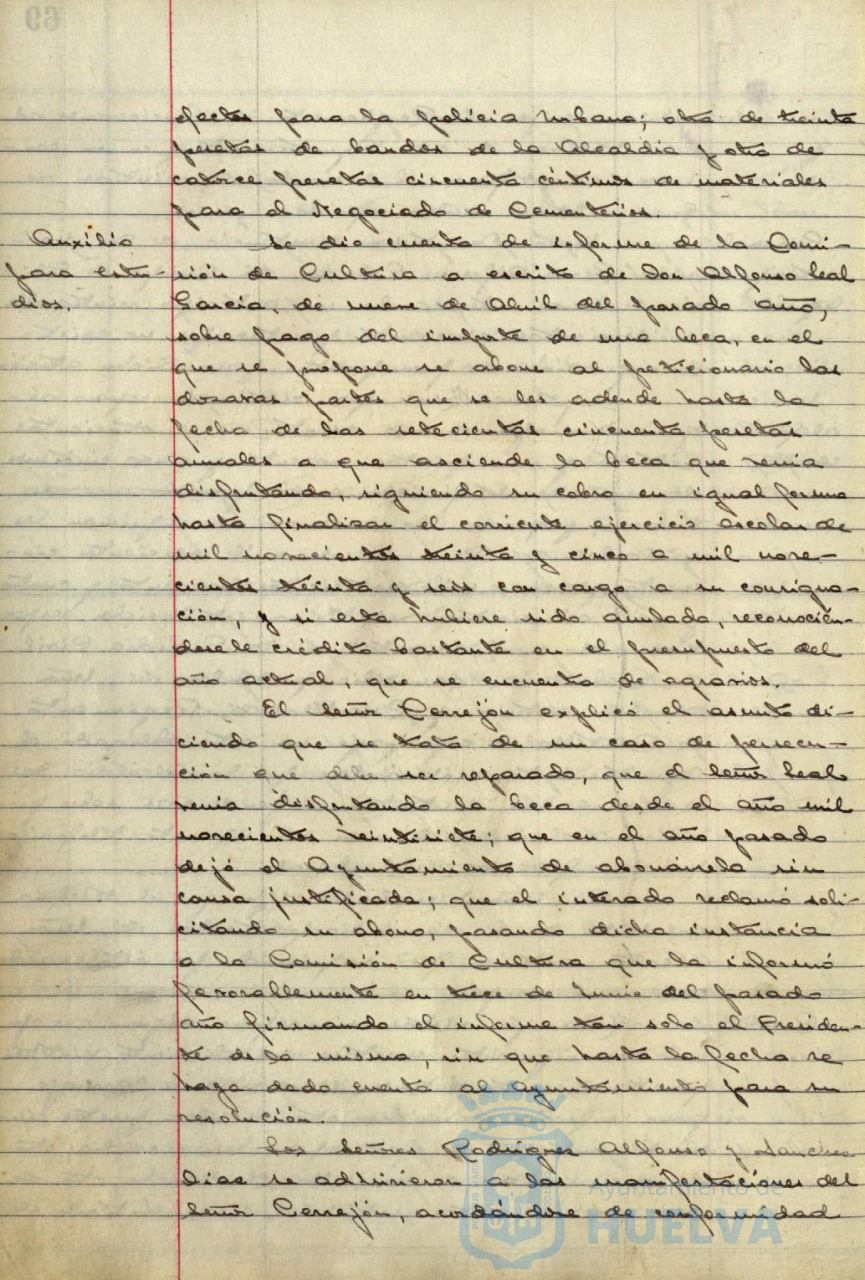 efectos para la policia Urbana; otra de treinta
pesetas de bandos de la Alcaldia y otra de
catorce pesetas cincuenta céntimos de materiales
para el Negociado de Cementerios.
Auxilio
para estu-
dios.
Se dio cuenta de informe de la Comi-
sión de Cultura a escrito de Don Alfonso Leal
Garcia, de nueve de Abril del pasado año,
sobre pago del importe de una beca, en el
que se propone se abone al peticionario las
dozavas partes que se les adende hasta la
fecha de las setecientas cincuenta pesetas
anuales a que asciende la beca que venia
disfrutando, siguiendo su cobro en igual forma
hasta finalizar el corriente ejercicio escolar de
mil novecientos treinta y cinco a mil nove-
cientos treinta y seis con cargo a su consigna-
ción, y si esta hubiere sido anulada, reconocién-
dosele crédito bastante en el presupuesto del
año actual, que se encuentra de agravios.
El Señor Cerrejón explicó el asunto di-
ciendo que se trata de un caso de persecu-
ción que debe ser reparado, que el Señor Leal
venia disfrutando la beca desde el año mil
novecientos veintisiete; que en el año pasado
dejó el Ayuntamiento de abonársela sin
causa justificada; que el interado reclamó soli-
citando su abono, pasando dicha instancia
a la Comisión de Cultura que la informó
favorablemente en trece de Junio del pasado
año firmando el informe tan solo el Presiden-
te de la misma, sin que hasta la fecha se
haya dado cuenta al Ayuntamiento para su
resolución.
Los Señores Rodríguez Alfonso y Sanchez
Dias se adhirieron a las manifestaciones del
Señor Cerrejón, acordándose de conformidad
Ayuntamiento de
HUELVA
69